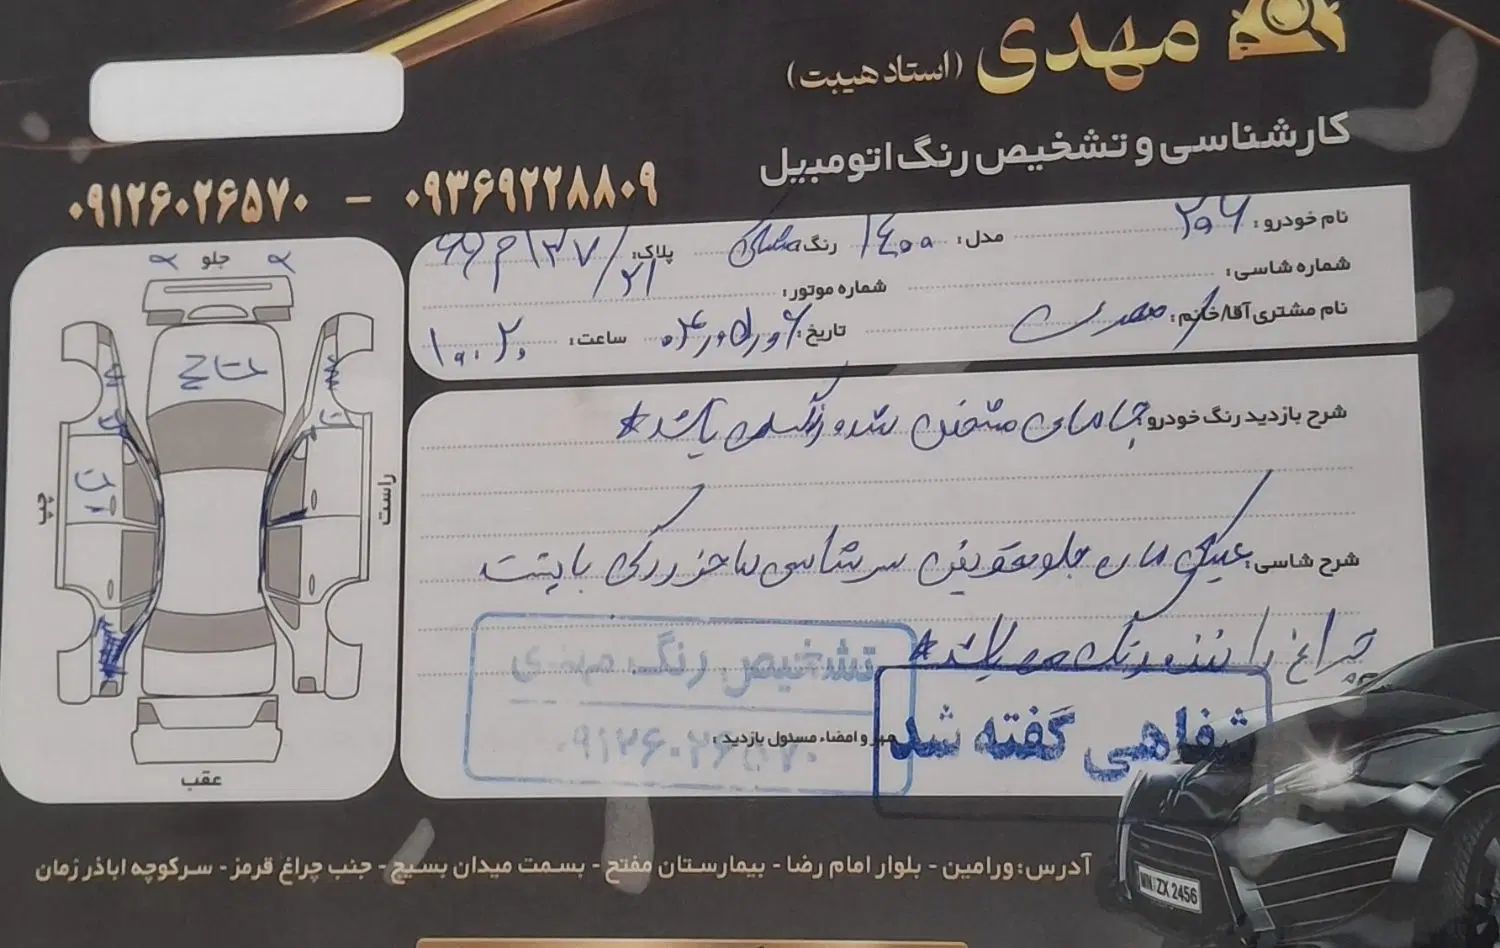 مهدی (استاد هیبت)
کارشناسی و تشخیص رنگ اتومبیل
۰۹۱۲۶۰۲۶۵۷۰ - ۰۹۳۶۹۲۲۸۸۰۹
نام خودرو: ۲۰۶ مدل: ۱۴۰۰ رنگ مشکی پلاک: ۱۳۷
۲۱
شماره شاسی: شماره موتور:
نام مشتری آقا/خانم: تاریخ: ساعت: ۱۰:۲۰
شرح بازدید رنگ خودرو: جاهای مشخص شده رنگ می باشد*
شرح شاسی: جلو تعویض سرشاسی ها خوردگی با پشت
چراغ راننده رنگ می باشد*
تشخیص رنگ مهدی
۰۹۱۲۶۰۲۶۵۷۰
مهر و امضاء مسئول بازدید:
شفاهی گفته شد
جلو
چپ
راست
عقب
آدرس: ورامین - بلوار امام رضا - بیمارستان مفتح - بسمت میدان بسیج - جنب چراغ قرمز - سرکوچه اباذر زمان
WN ZX 2456